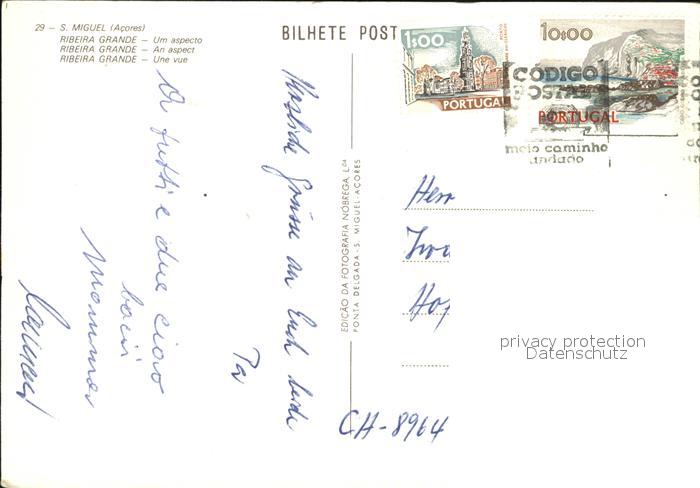 29 – S. MIGUEL (Açores)
RIBEIRA GRANDE – Um aspecto
RIBEIRA GRANDE – An aspect
RIBEIRA GRANDE – Une vue
BILHETE POST
1$00
PORTUGAL
10$00
PORTUGAL
CÓDIGO
POSTAL
meio caminho
andado
Herzliche Grüsse an Euch beide
Pa
tutti e due ciao
bacii
Mamma
EDIÇÃO DA FOTOGRAFIA NÓBREGA, L.DA
PONTA DELGADA - S. MIGUEL - AÇORES
Herr
CH-8964
privacy protection
Datenschutz